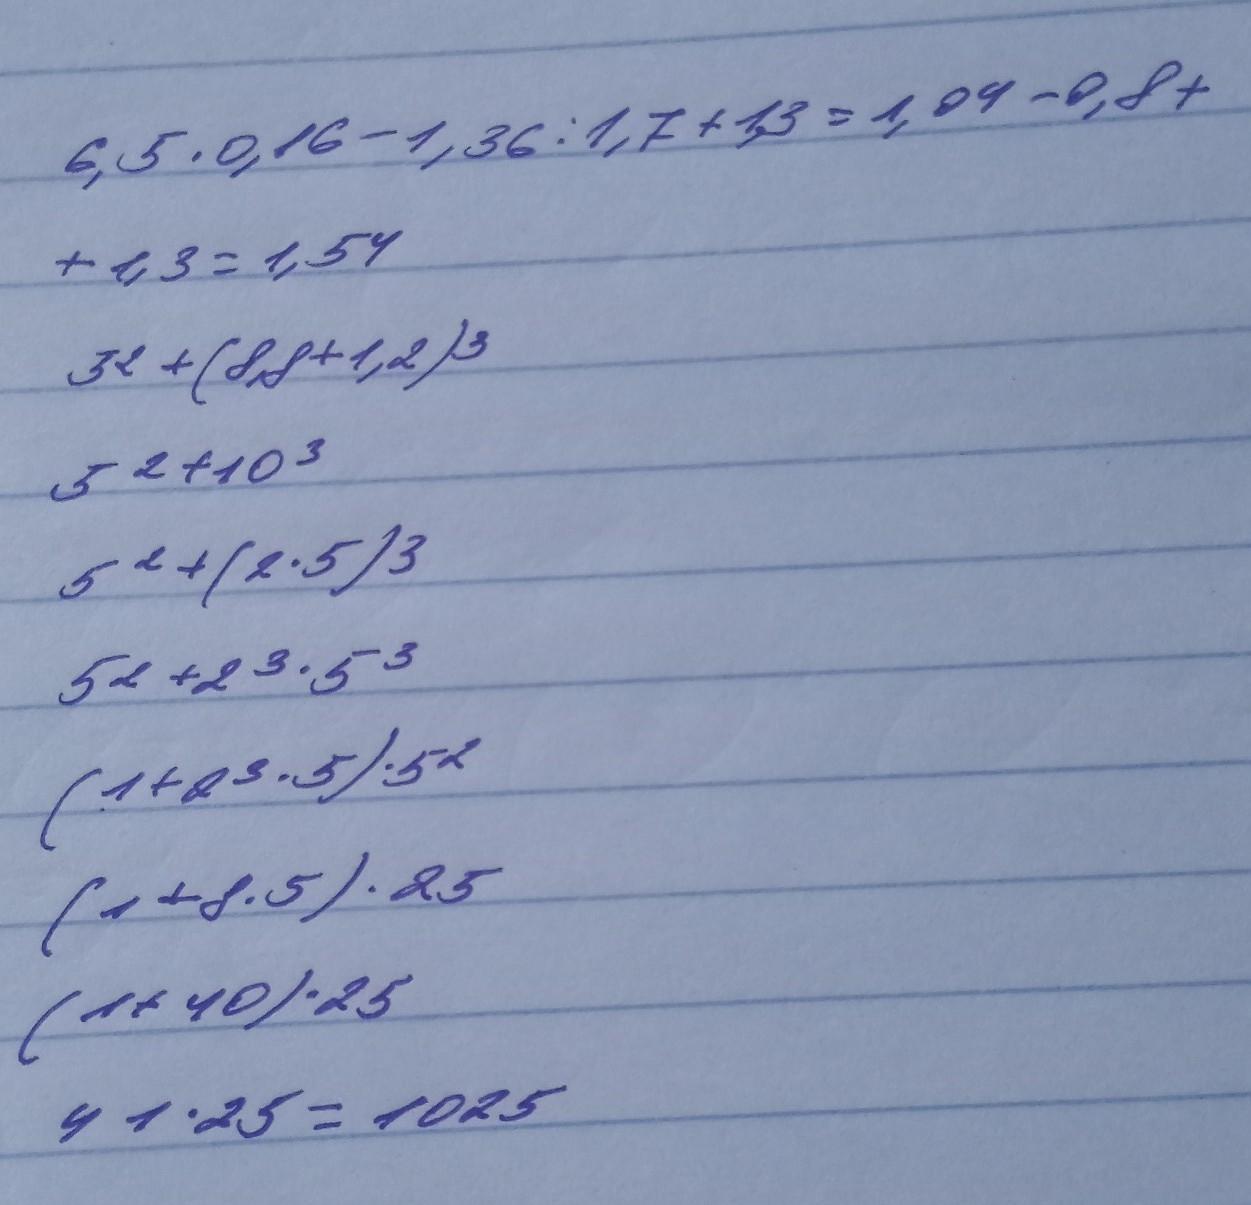 6,5·0,16-1,36:1,7+1,3=1,04-0,8+
+1,3=1,54
3²+(8,8+1,2)³
5²+10³
5²+(2·5)3
5²+2³·5³
(1+2³·5)·5²
(1+8·5)·25
(1+40)·25
41·25=1025